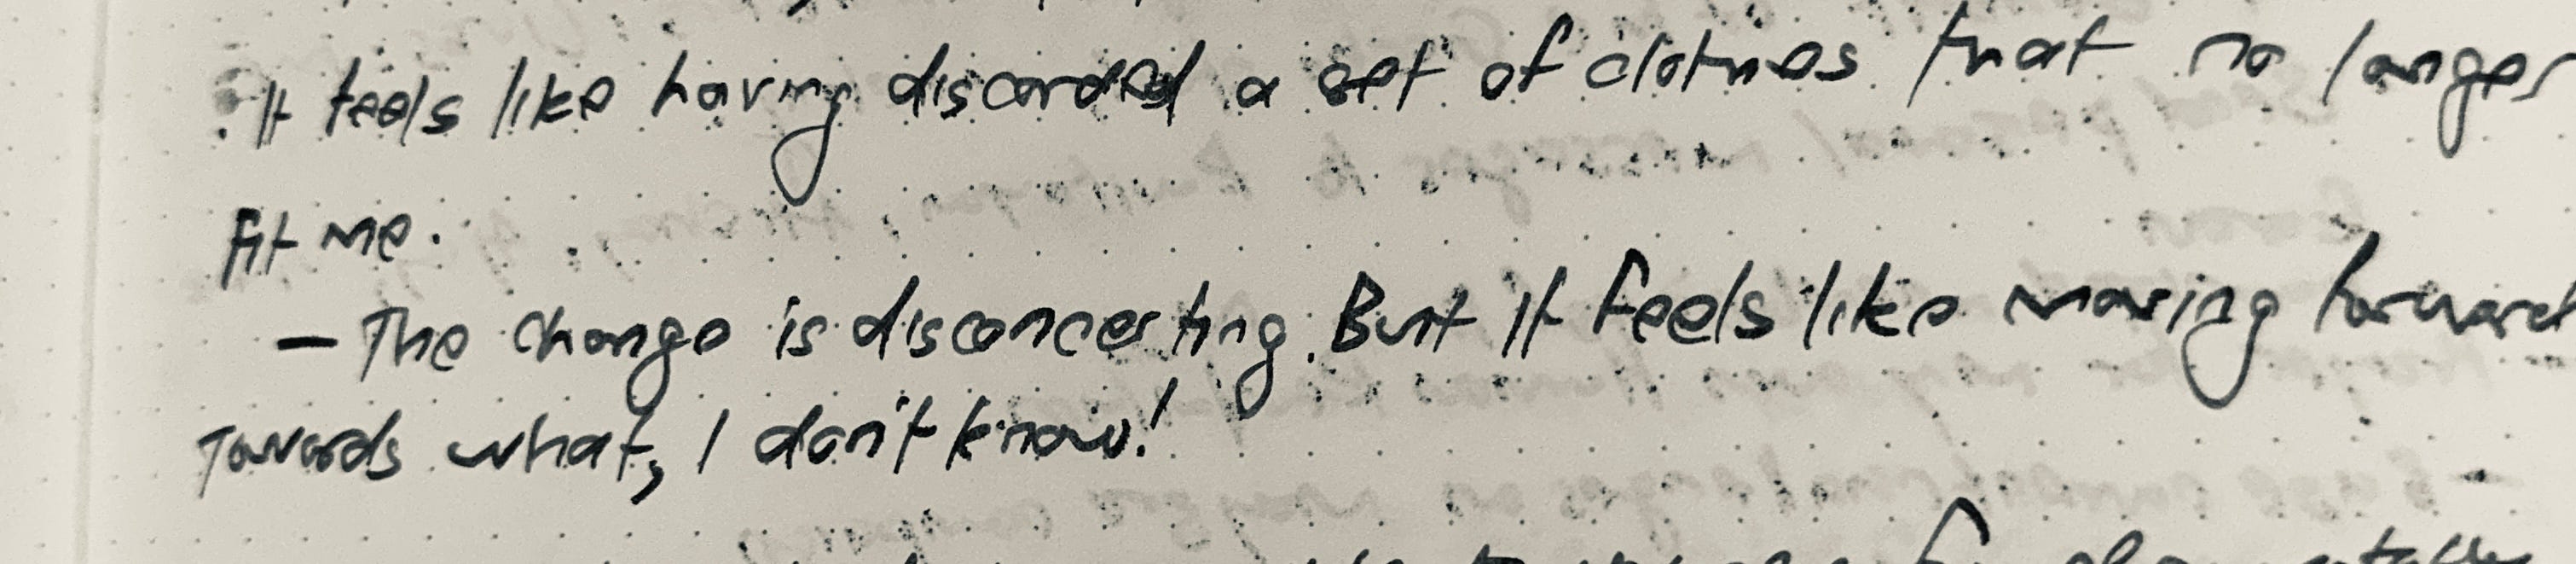 . It feels like having discarded a set of clothes that no longer
fit me.
— The change is disconcerting. But it feels like moving forward
Towards what, I don't know!